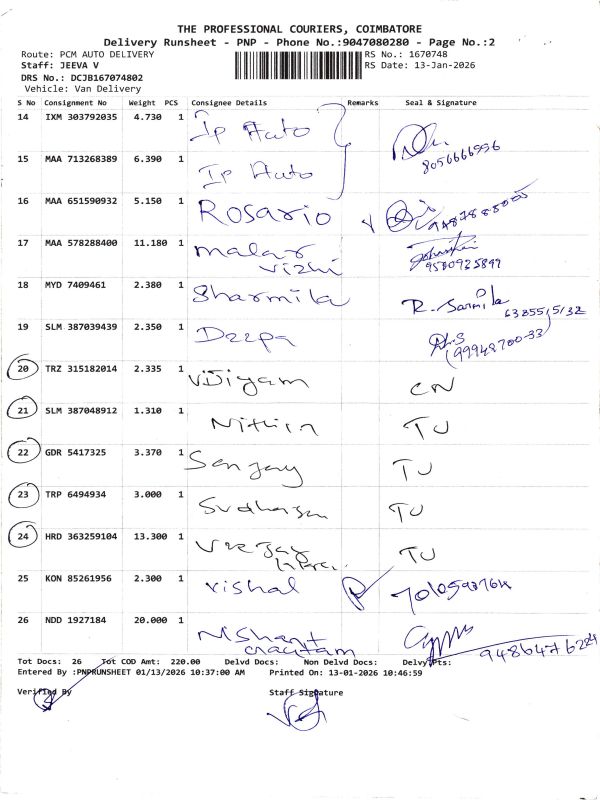 THE PROFESSIONAL COURIERS, COIMBATORE
Delivery Runsheet - PNP - Phone No.:9047080280 - Page No.:2
Route: PCM AUTO DELIVERY RS No.: 1670748
Staff: JEEVA V RS Date: 13-Jan-2026
DRS No.: DCJB167074802
Vehicle: Van Delivery
S No Consignment No Weight PCS Consignee Details Remarks Seal & Signature
14 IXM 303792035 4.730 1 Ip Auto
8056666956
15 MAA 713268389 6.390 1 Ip Auto
16 MAA 651590932 5.150 1 Rosario
17 MAA 578288400 11.180 1 malar
vizhi 9580925897
18 MYD 7409461 2.380 1 Sharmila R. Sarmila
19 SLM 387039439 2.350 1 Deepa
20 TRZ 315182014 2.335 1 CN
21 SLM 387048912 1.310 1 Nithin TU
22 GDR 5417325 3.370 1 Sanjay TU
23 TRP 6494934 3.000 1 TU
24 HRD 363259104 13.300 1 TU
25 KON 85261956 2.300 1 Vishal
26 NDD 1927184 20.000 1
9486476224
Tot Docs: 26 Tot COD Amt: 220.00 Delvd Docs: Non Delvd Docs: Delvy Pts:
Entered By :PNPRUNSHEET 01/13/2026 10:37:00 AM Printed On: 13-01-2026 10:46:59
Verified By Staff Signature